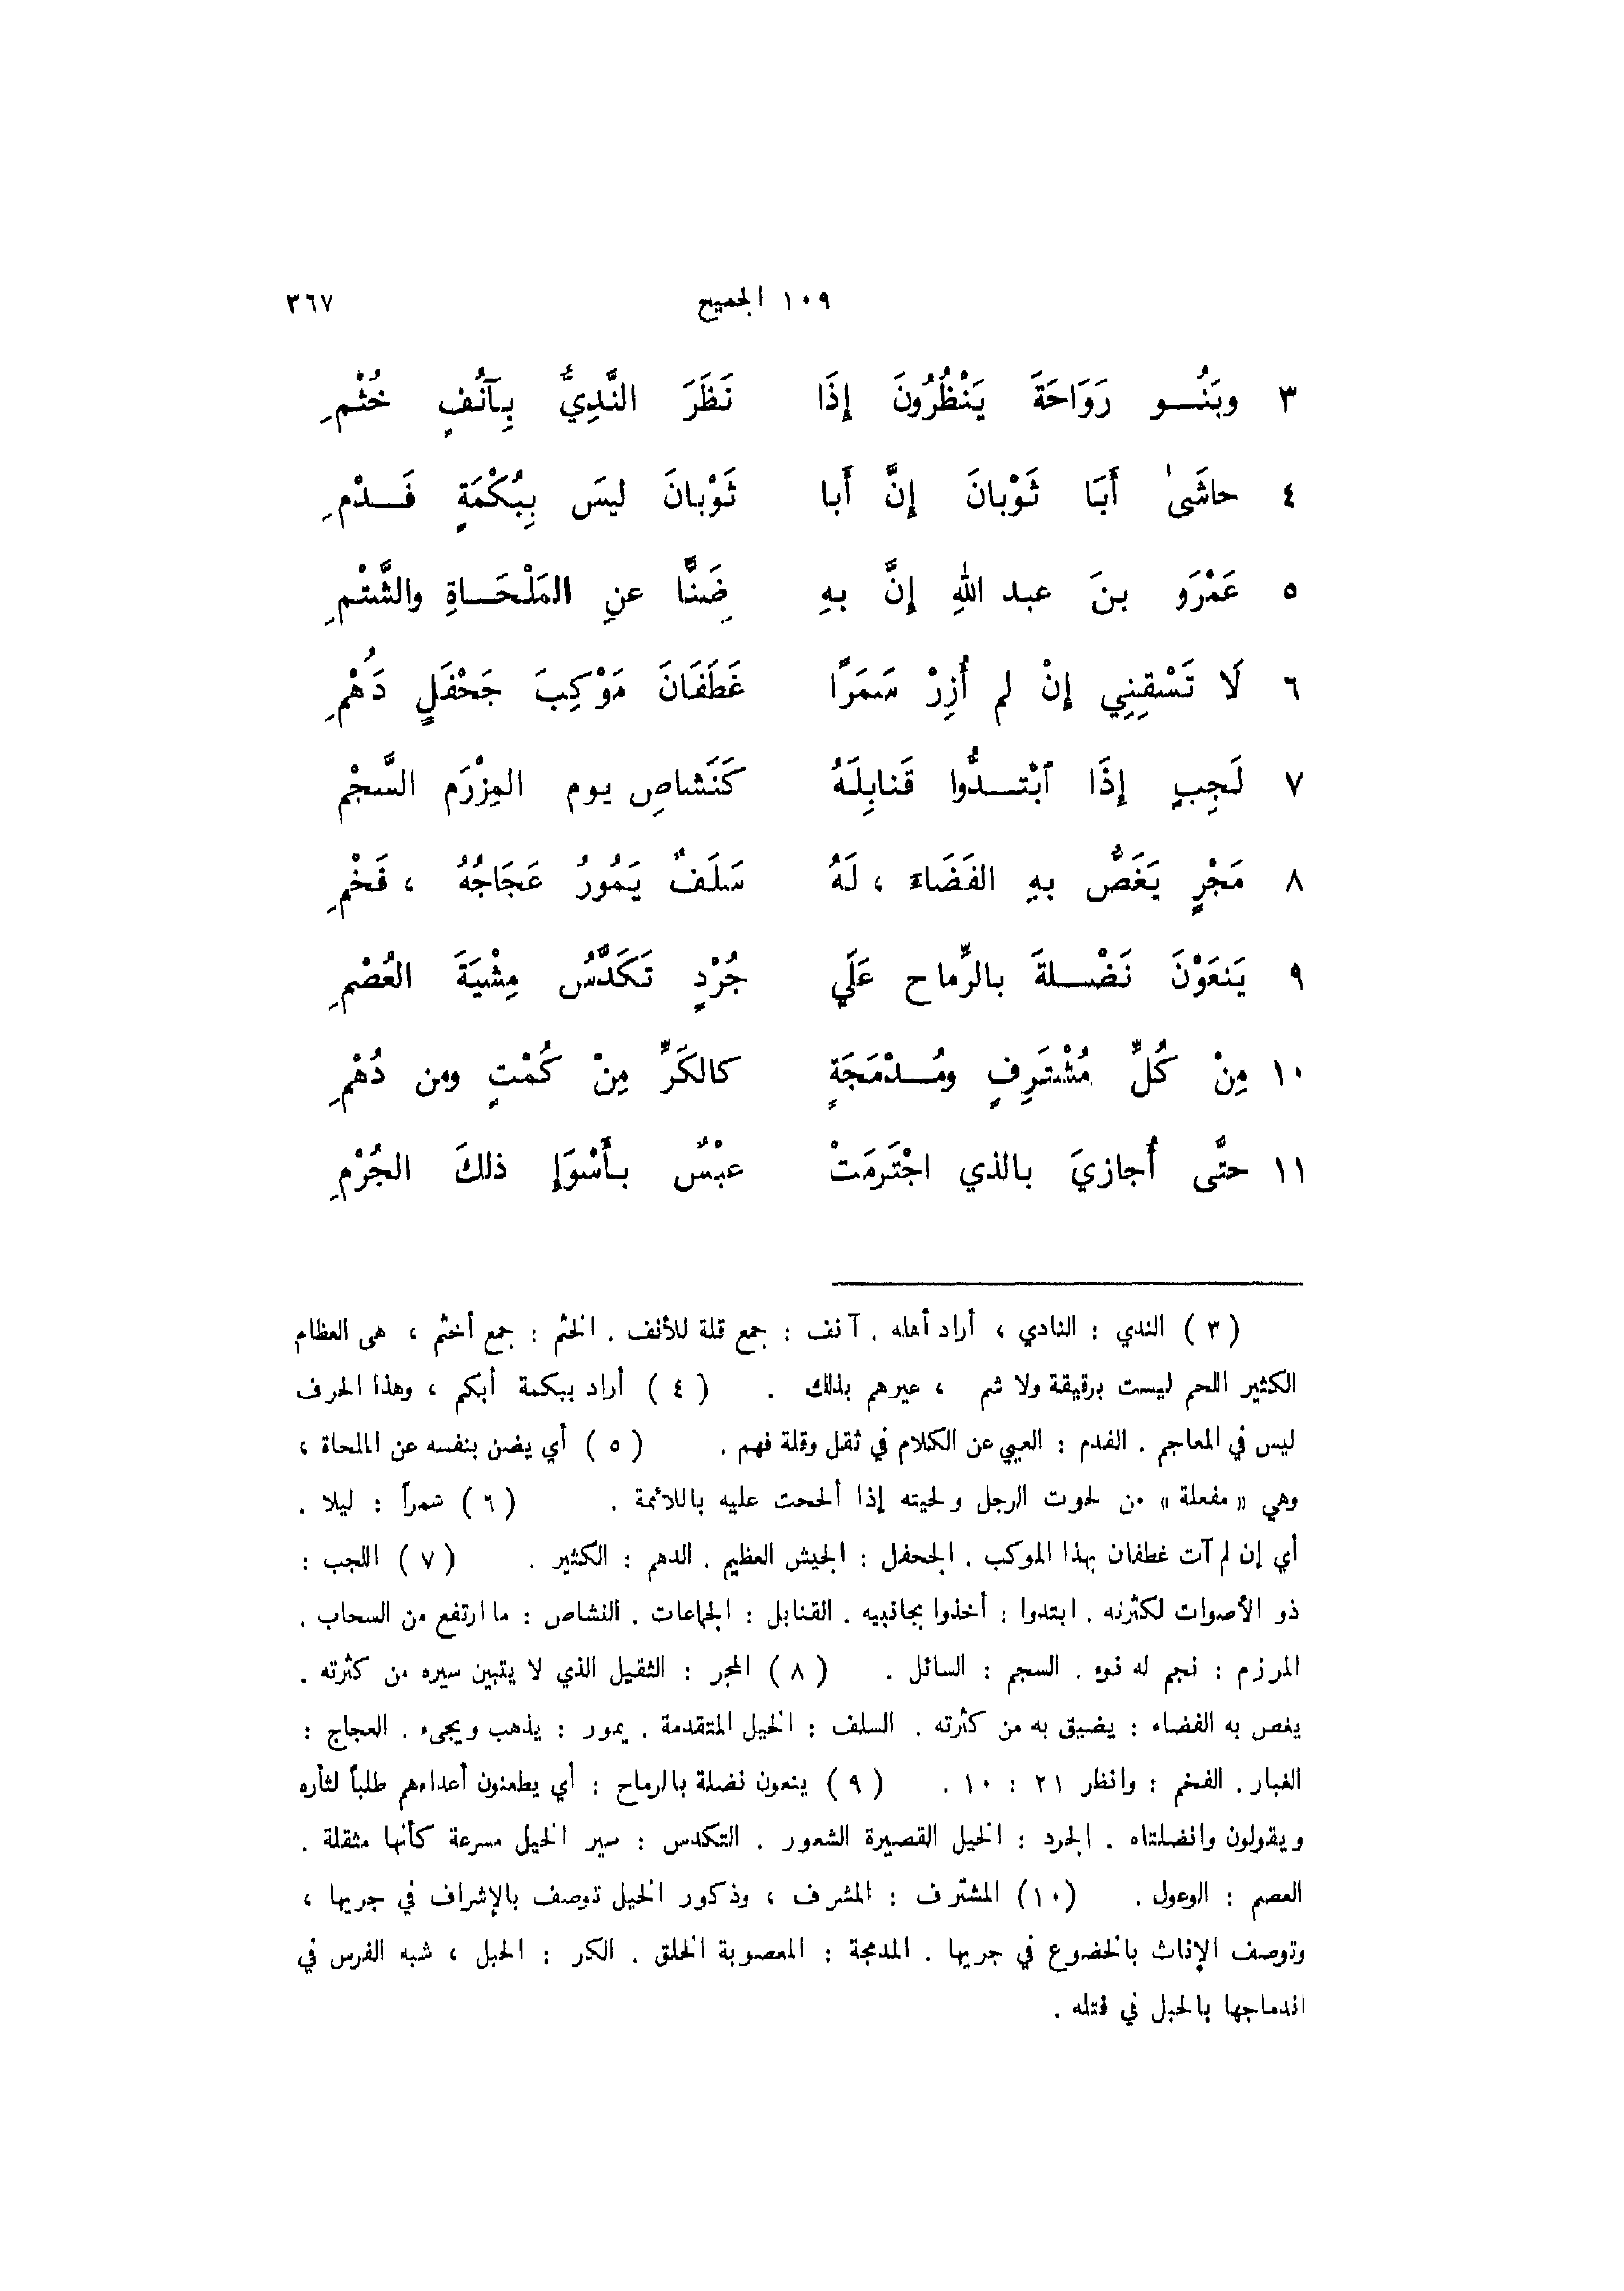 ١٠٩ الجميح ٣٦٧
٣ وبَنُـــو رَوَاحَةَ يَنْظُرُونَ إِذَا نَظَرَ النَّدِيُّ بِآنُفٍ خُثْمِ
٤ حاشَىٰ أَبَا ثَوْبانَ إِنَّ أَبا ثَوْبانَ ليسَ بِبُكْمَةٍ فَـــدْمِ
٥ عَمْرَو بنَ عبد اللهِ إِنَّ بهِ ضَنًّا عنِ المَلْحَــاةِ والشَّتْمِ
٦ لَا تَسْقِنِي إِنْ لم أُزِرْ سَمَرًا غَطَفَانَ مَوْكِبَ جَحْفَلٍ دَُهْمِ
٧ لَجِبٍ إِذَا ٱبْتــدُّوا قَنابِلَهُ كَنَشاصِ يوم المِرْزَم السَّجْمِ
٨ مَجْرٍ يَغَصُّ بهِ الفَضَاءُ ، لَهُ سَلَفٌ يَمُورُ عَجَاجُهُ ، فَخْمِ
٩ يَنعَوْنَ نَضْــلةَ بالرِّماح عَلَي جُرْدٍ تَكَدَّسُ مِشْيَةَ العُصْمِ
١٠ مِنْ كُلِّ مُشْتَرِفٍ ومُــدْمَجَةٍ كالكَرِّ مِنْ كُمْتٍ ومن دُهْمِ
١١ حتَّى أُجازيَ بالذي اجْتَرمَتْ عبْسٌ بأَسْوَإِ ذلكَ الجُرْمِ
( ٣ ) الندي : النادي ، أراد أهله . آنف : جمع قلة للأنف . الخثم : جمع أخثم ، هى العظام
الكثير اللحم ليست برقيقة ولا شم ، عيرهم بذلك . ( ٤ ) أراد ببكمة أبكم ، وهذا الحرف
ليس في المعاجم . الفدم : العيي عن الكلام في ثقل وقلة فهم . ( ٥ ) أي يضن بنفسه عن الملحاة ،
وهي « مفعلة » من لحوت الرجل ولحيته إذا ألححت عليه باللائمة . ( ٦ ) سمراً : ليلا .
أي إن لم آت غطفان بهذا الموكب . الجحفل : الجيش العظيم . الدهم : الكثير . ( ٧ ) اللجب :
ذو الأصوات لكثرته . ابتدوا : أخذوا بجانبيه . القنابل : الجماعات . النشاص : ما ارتفع من السحاب .
المرزم : نجم له نوء . السجم : السائل . ( ٨ ) المجر : الثقيل الذي لا يتبين سيره من كثرته .
يغص به الفضاء : يضيق به من كثرته . السلف : الخيل المتقدمة . يمور : يذهب ويجىء . العجاج :
الغبار . الفخم : وانظر ٢١ : ١٠ . ( ٩ ) ينعون نضلة بالرماح : أي يطعنون أعداءهم طلباً لثأره
ويقولون وانضلتاه . الجرد : الخيل القصيرة الشعور . التكدس : سير الخيل مسرعة كأنها مثقلة .
العصم : الوعول . (١٠) المشترف : المشرف ، وذكور الخيل توصف بالإشراف في جريها ،
وتوصف الإناث بالخضوع في جريها . المدمجة : المعصوبة الخلق . الكر : الحبل ، شبه الفرس في
اندماجها بالحبل في فتله .